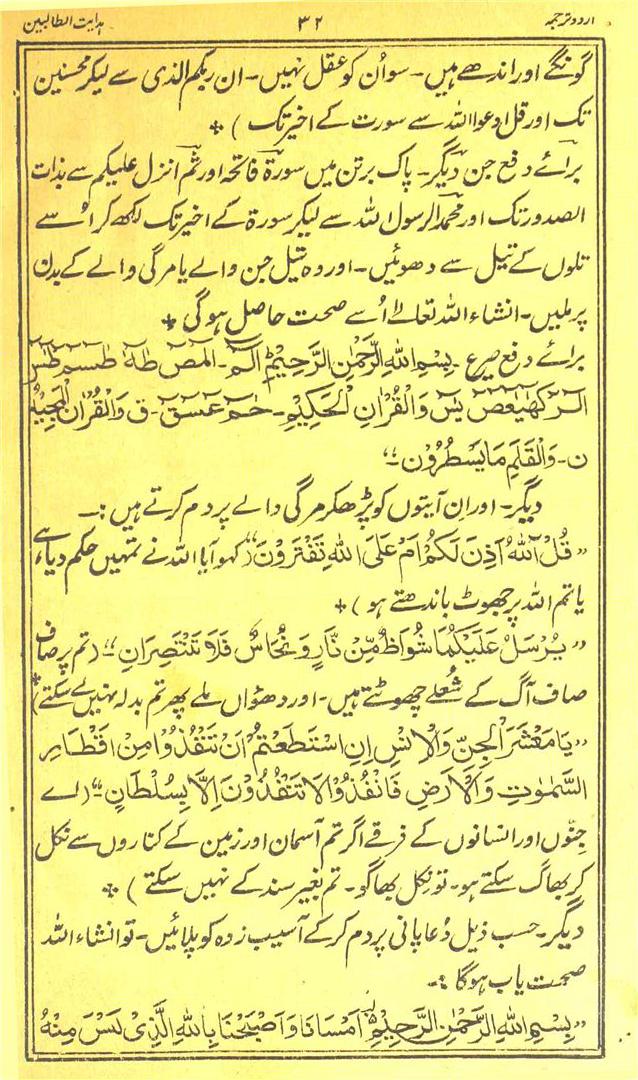 اردو ترجمہ ۳۲ ہدایت الطالبین
گونگے اور اندھے ہیں۔ سو اُن کو عقل نہیں۔ ان ربکم الذی سے لیکر محسنین
تک اور قل ادعوا اللہ سے سورت کے اخیر تک) ٭
برائے دفع جن دیگر۔ پاک برتن میں سورۃ فاتحہ اور ثم انزل علیکم سے بذات
الصدور تک اور محمد الرسول اللہ سے لیکر سورۃ کے اخیر تک لکھ کر اُسے
تلوں کے تیل سے دھوئیں۔ اور وہ تیل جن والے یا مرگی والے کے بدن
پر ملیں۔ انشاء اللہ تعالےٰ اُسے صحت حاصل ہوگی ٭
برائے دفع صرع۔ بِسْمِ اللہِ الرَّحْمٰنِ الرَّحِیْمِ الٓمٓ۔ الٓمٓصٓ طٰہٰ طٰسٓمٓ طٰسٓ
الٓرٰ کٓھٰیٰعٓصٓ یٰسٓ وَالْقُرْاٰنِ الْحَکِیْمِ۔ حٰمٓ عٓسٓقٓ۔ قٓ وَالْقُرْاٰنِ الْمَجِیْدِ
ن۔ وَالْقَلَمِ مَا یَسْطُرُوْنَ۔“
دیگر۔ اور اِن آیتوں کو پڑھکر مرگی والے پر دم کرتے ہیں:۔
”قُلْ آٰللہُ اَذِنَ لَکُمْ اَمْ عَلَی اللہِ تَفْتَرُوْنَ“ (کہو آیا اللہ نے تمہیں حکم دیا ہے،
یا تم اللہ پر جھوٹ باندھتے ہو) ٭
”یُرْسَلُ عَلَیْکُمَا شُوَاظٌ مِّنْ نَّارٍ وَّنُحَاسٌ فَلَا تَنْتَصِرَانِ“ (تم پر صاف
صاف آگ کے شُعلے چھوٹتے ہیں۔ اور دھوٗاں ملے پھر تم بدلہ نہیں لے سکتے) ٭
”یَا مَعْشَرَ الْجِنِّ وَالْاِنْسِ اِنِ اسْتَطَعْتُمْ اَنْ تَنْفُذُوْا مِنْ اَقْطَارِ
السَّمٰوٰتِ وَالْاَرْضِ فَانْفُذُوْا لَا تَنْفُذُوْنَ اِلَّا بِسُلْطَانٍ“ (اے
جِنّوں اور انسانوں کے فرقے اگر تم آسمان اور زمین کے کناروں سے نکل
کر بھاگ سکتے ہو۔ تو نکل بھاگو۔ تم بغیر سند کے نہیں سکتے) ٭
دیگر۔ حسب ذیل دُعا پانی پر دم کرکے آسیب زدہ کو پلائیں۔ تو انشاء اللہ
صحت یاب ہوگا:۔
”بِسْمِ اللہِ الرَّحْمٰنِ الرَّحِیْمِ اَمْسَانَا وَاَصْبَحْنَا بِاللہِ الَّذِیْ لَیْسَ مِنْہُ